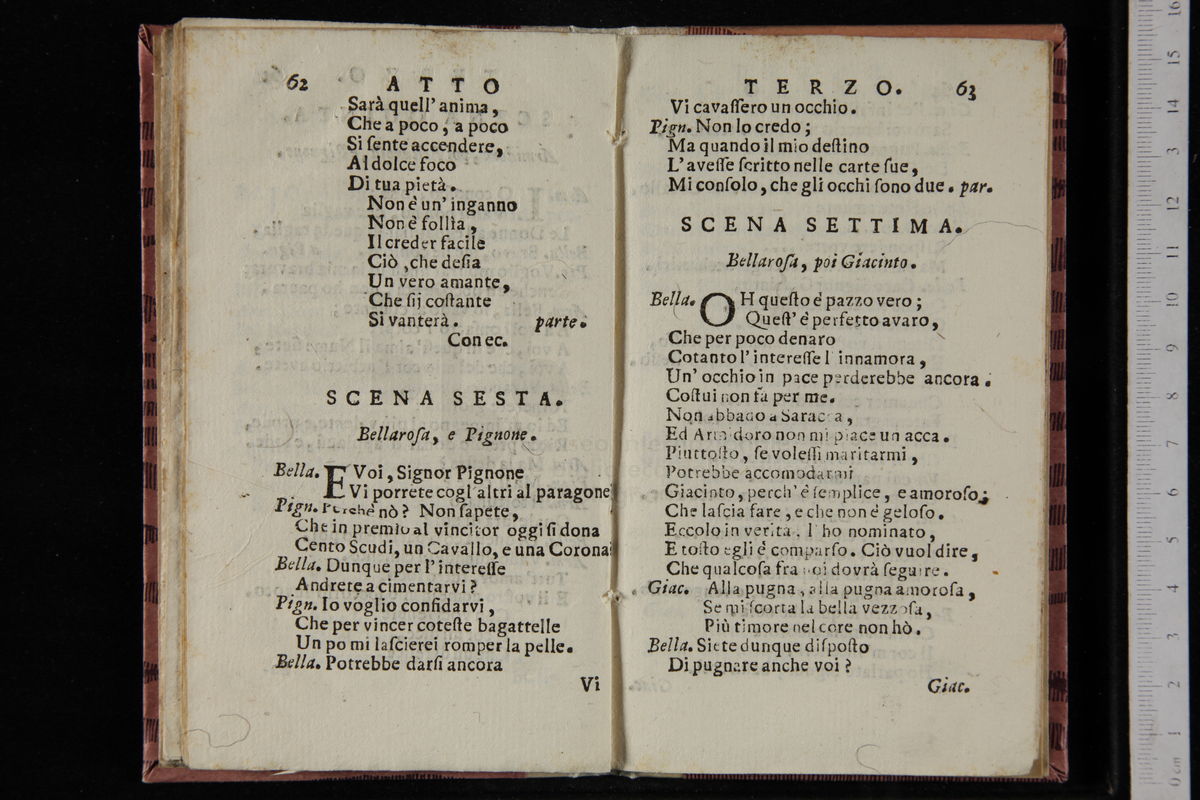 62 ATTO
Sarà quell' anima,
Che a poco, a poco
Si ſente accendere,
Al dolce foco
Di tua pietà.
Non è un' inganno
Non è follìa,
Il creder facile
Ciò, che deſia
Un vero amante,
Che ſij coſtante
Si vanterà. parte.
Con ec.
SCENA SESTA.
Bellaroſa, e Pignone.
Bella. E Voi, Signor Pignone
Vi porrete cogl'altri al paragone
Pign. Perchè nò? Non ſapete,
Che in premio al vincitor oggi ſi dona
Cento Scudi, un Cavallo, e una Corona
Bella. Dunque per l'intereſſe
Andrete a cimentarvi?
Pign. Io voglio confidarvi,
Che per vincer coteſte bagattelle
Un po mi laſcierei romper la pelle.
Bella. Potrebbe darſi ancora
Vi
TERZO. 63
Vi cavaſſero un occhio.
Pign. Non lo credo;
Ma quando il mio deſtino
L'aveſſe ſcritto nelle carte ſue,
Mi conſolo, che gli occhi ſono due. par.
SCENA SETTIMA.
Bellaroſa, poi Giacinto.
Bella. OH queſto è pazzo vero;
Queſt' è perfetto avaro,
Che per poco denaro
Cotanto l'intereſſe l'innamora,
Un' occhio in pace perderebbe ancora.
Coſtui non fà per me.
Non abbado a Saracca,
Ed Armidoro non mi piace un acca.
Piuttoſto, ſe voleſſi maritarmi,
Potrebbe accomodarmi
Giacinto, perch' è ſemplice, e amoroſo;
Che laſcia fare, e che non è geloſo.
Eccolo in verità. l'ho nominato,
E toſto egli è comparſo. Ciò vuol dire,
Che qualcoſa fra noi dovrà ſeguire.
Giac. Alla pugna, alla pugna amoroſa,
Se mi ſcorta la bella vezzoſa,
Più timore nel core non hò.
Bella. Siete dunque diſpoſto
Di pugnare anche voi?
Giac.